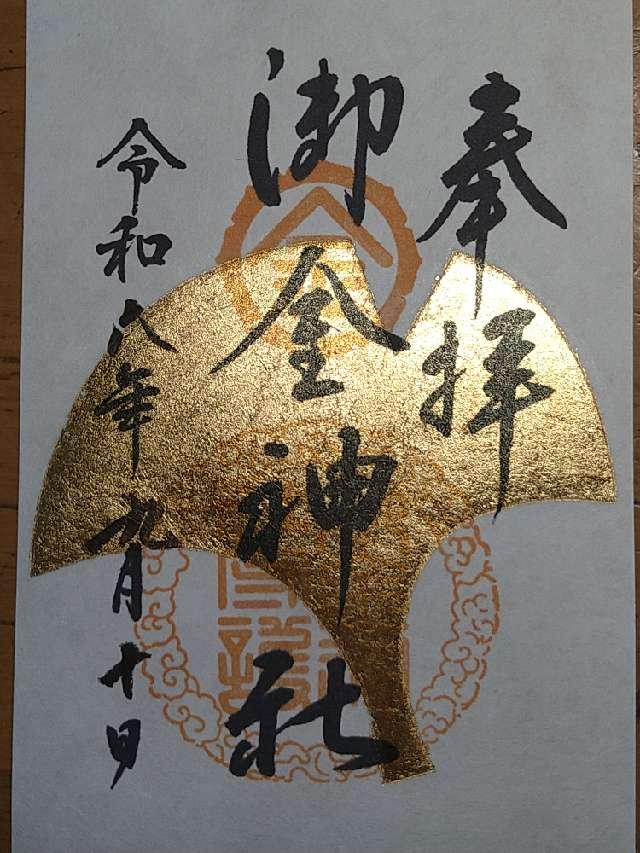 奉拝
御金神社
令和六年九月十日